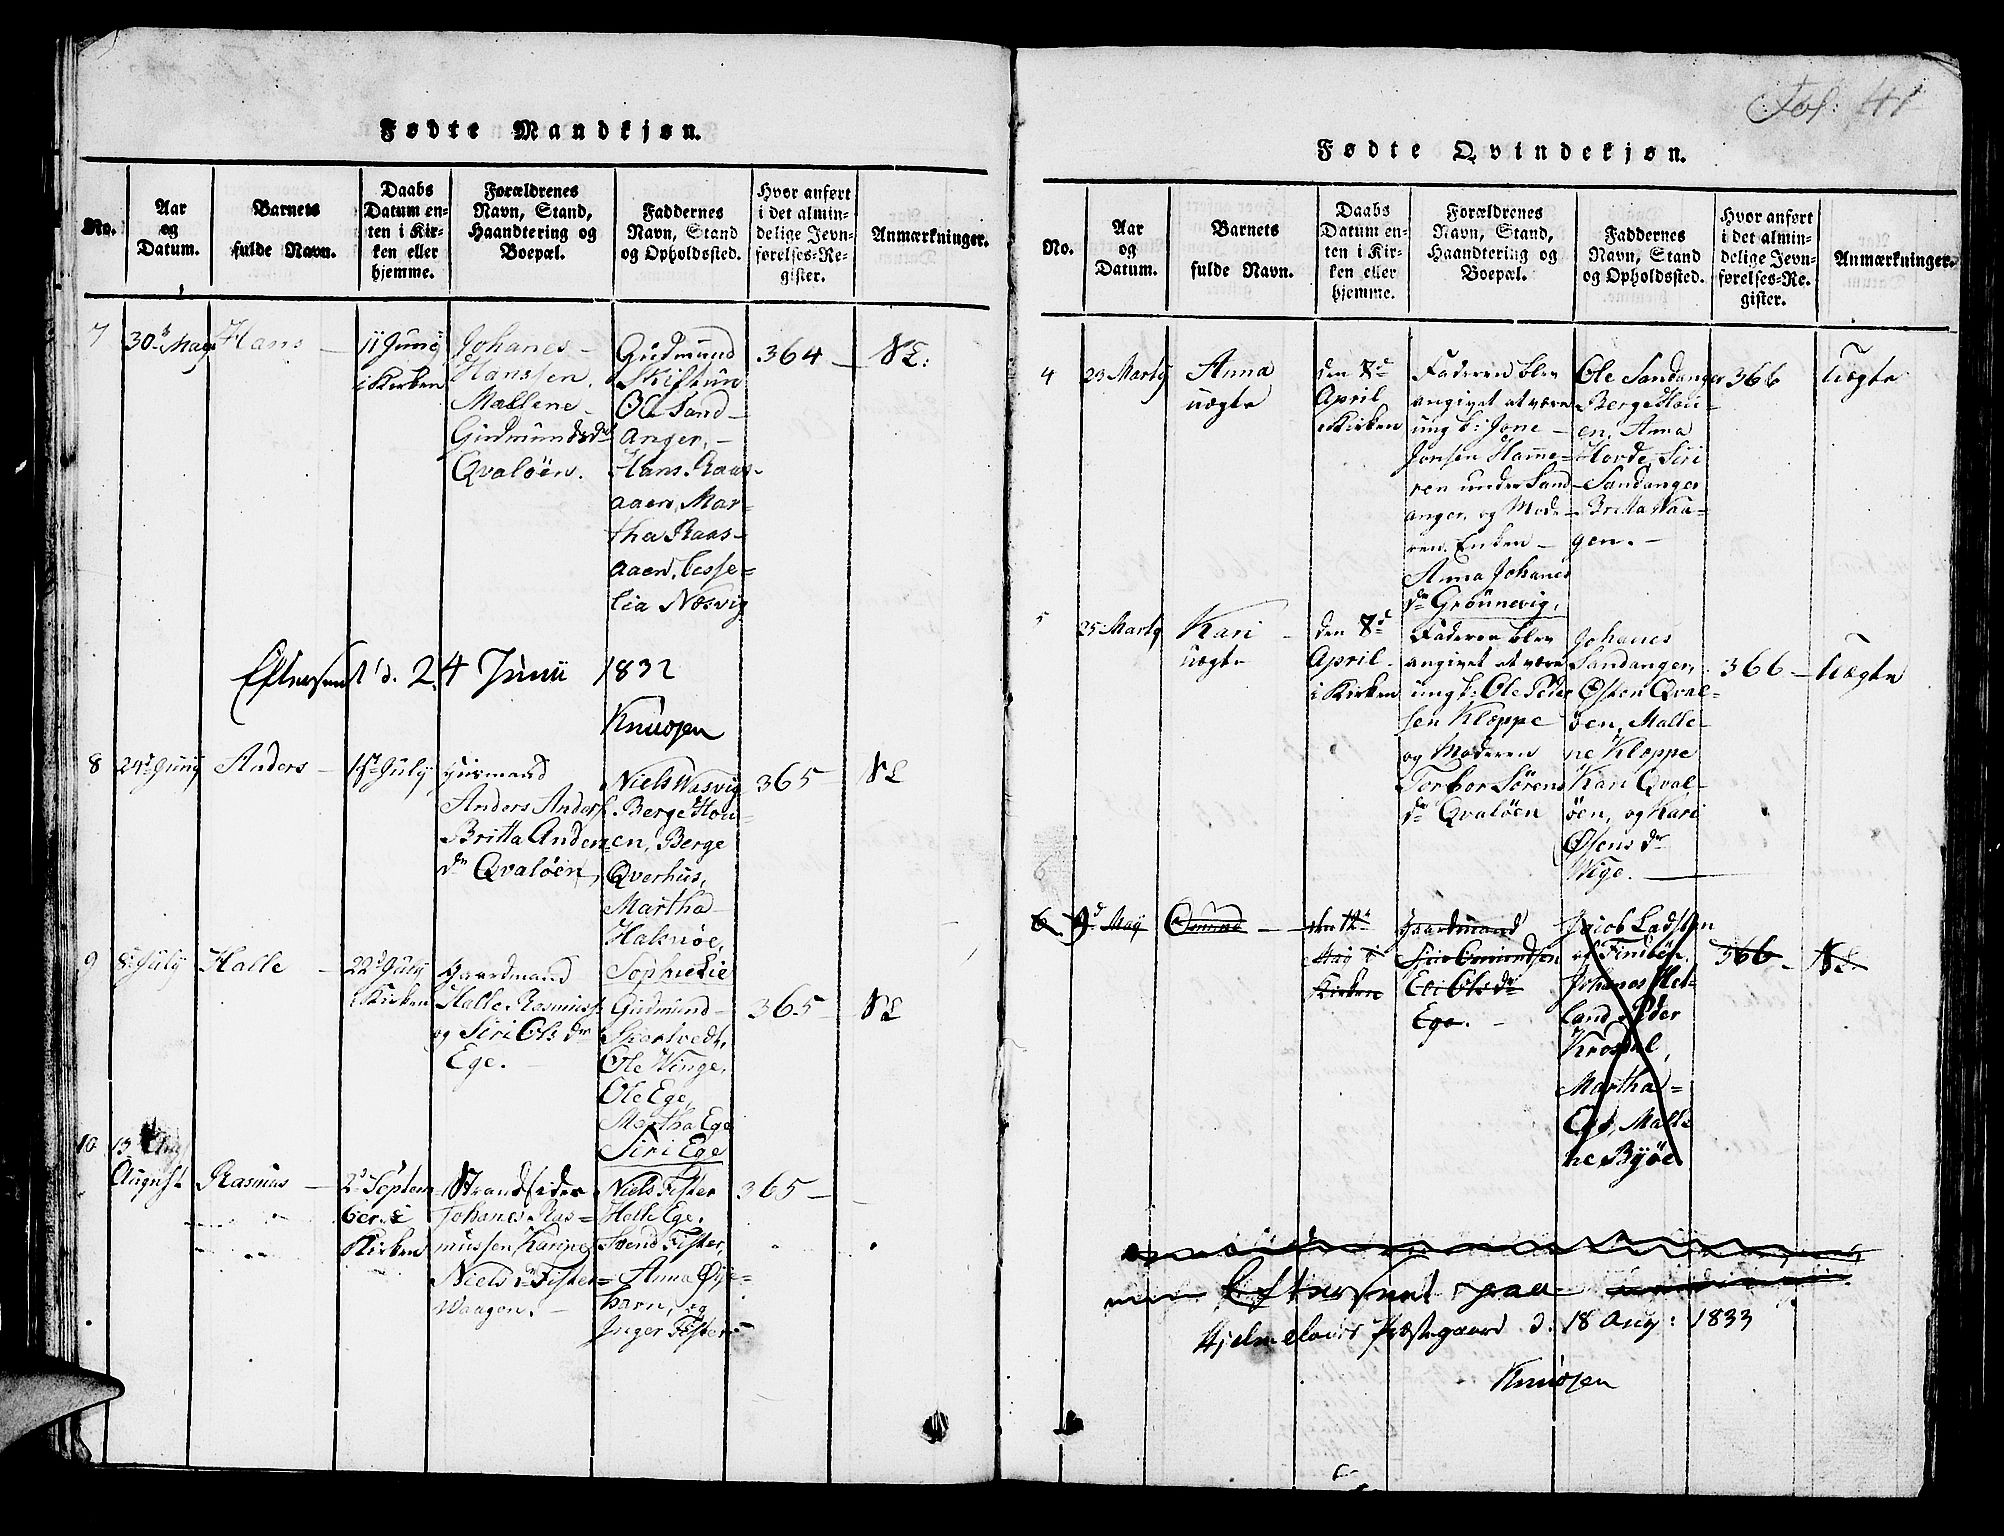 Fødte Mandkjøn.
No.
Aar
og
Datum.
Barnets
fulde Navn.
Daabs
Datum en-
ten i Kir-
ken eller
hjemme.
Forældrenes
Navn, Stand,
Haandtering og
Boepæl.
Faddernes
Navn, Stand
og Opholdssted.
Hvor anført
i det almin-
delige Jevn-
førelses-Re-
gister.
Anmærkninger.
7
30 May
Hans
11 Junij
i Kirken
Johanes
Hanssen
Mallene
Gudmundsdr
Qvaløen.
Gudmund
Skiftun
Ole Sand-
anger,
Hans Raas-
aaen, Mar-
tha Raas-
aaen, Cesse-
lia Næsvig
364
Efterseet d. 24 Junii 1832
Knudsen
8
24 Junij
Anders
1st July
Huusmand
Anders Anders.
Britta Anders
dr Qvaløen,
Niels Wasvig
Berge Hou-
en, Berge
Qverhus,
Martha
Halsnøe,
Sophie Lie
365
9
8 July
Halle
22d July
i Kirken
Gaardmand
Halle Rasmuss.
og Siri Ols dr
Ege.
Gudmund
Skartvedt,
Ole Winge,
Ole Ege,
Martha Ege
Siri Ege
365
10
13
August
Rasmus
2d Septem
ber i
Kirken
Strandsider
Johanes Ras=
mussen Karine
Niels dr Fister=
Waagen.
Niels Fister
Halle Ege.
Svend Fister,
Anna Øye=
barn, og
Inger Fister
365
Fol: 41
Fødte Qvindekjøn.
No.
Aar
og
Datum.
Barnets
fulde Navn.
Daabs
Datum en-
ten i Kir-
ken eller
hjemme.
Forældrenes
Navn, Stand,
Haandtering og
Boepæl.
Faddernes
Navn, Stand
og Opholdssted.
Hvor anført
i det almin-
delige Jevn-
førelses-Re-
gister.
Anmærkninger.
4
23 Martij
Anna
uægte
den 7d
April
i Kirken
Faderen blev
angivet at være
ungk: Jone
Jonsen Hamme-
ren under Sand
anger, og Mode-
ren Enken
Anna Johanes
dr Grønnevig.
Ole Sandanger
Berge Hou-
en, Anna
Horde, Siri
Sandanger
Britta Waa-
gen.
366
Uægte
5
25 Martij
Kari
uægte
den 7d
April
i Kirken
Faderen blev
angivet at være
ungk: Ole Peder
sen Kloppe
og Moderen
Torbor Sørens
dr Qvaløen
Johanes
Sandanger,
Østen Qval-
øen, Malle-
ne Kloppe
Kari Qval-
øen, og Kari
Østens dr
Wige.
366
Uægte
6
9d May
Omund
den
May i
Kirken
Gaardmand
Siri Omundsen
Eli Ols dr
Ege.
Jacob Ladsten
af Findøe,
Johanes Het-
land Peder
Martha
Ege, Malle
ne Byøe
366
Efterseet paa
Hjelmelands Præstegaard d. 18 Aug: 1833
Knudsen